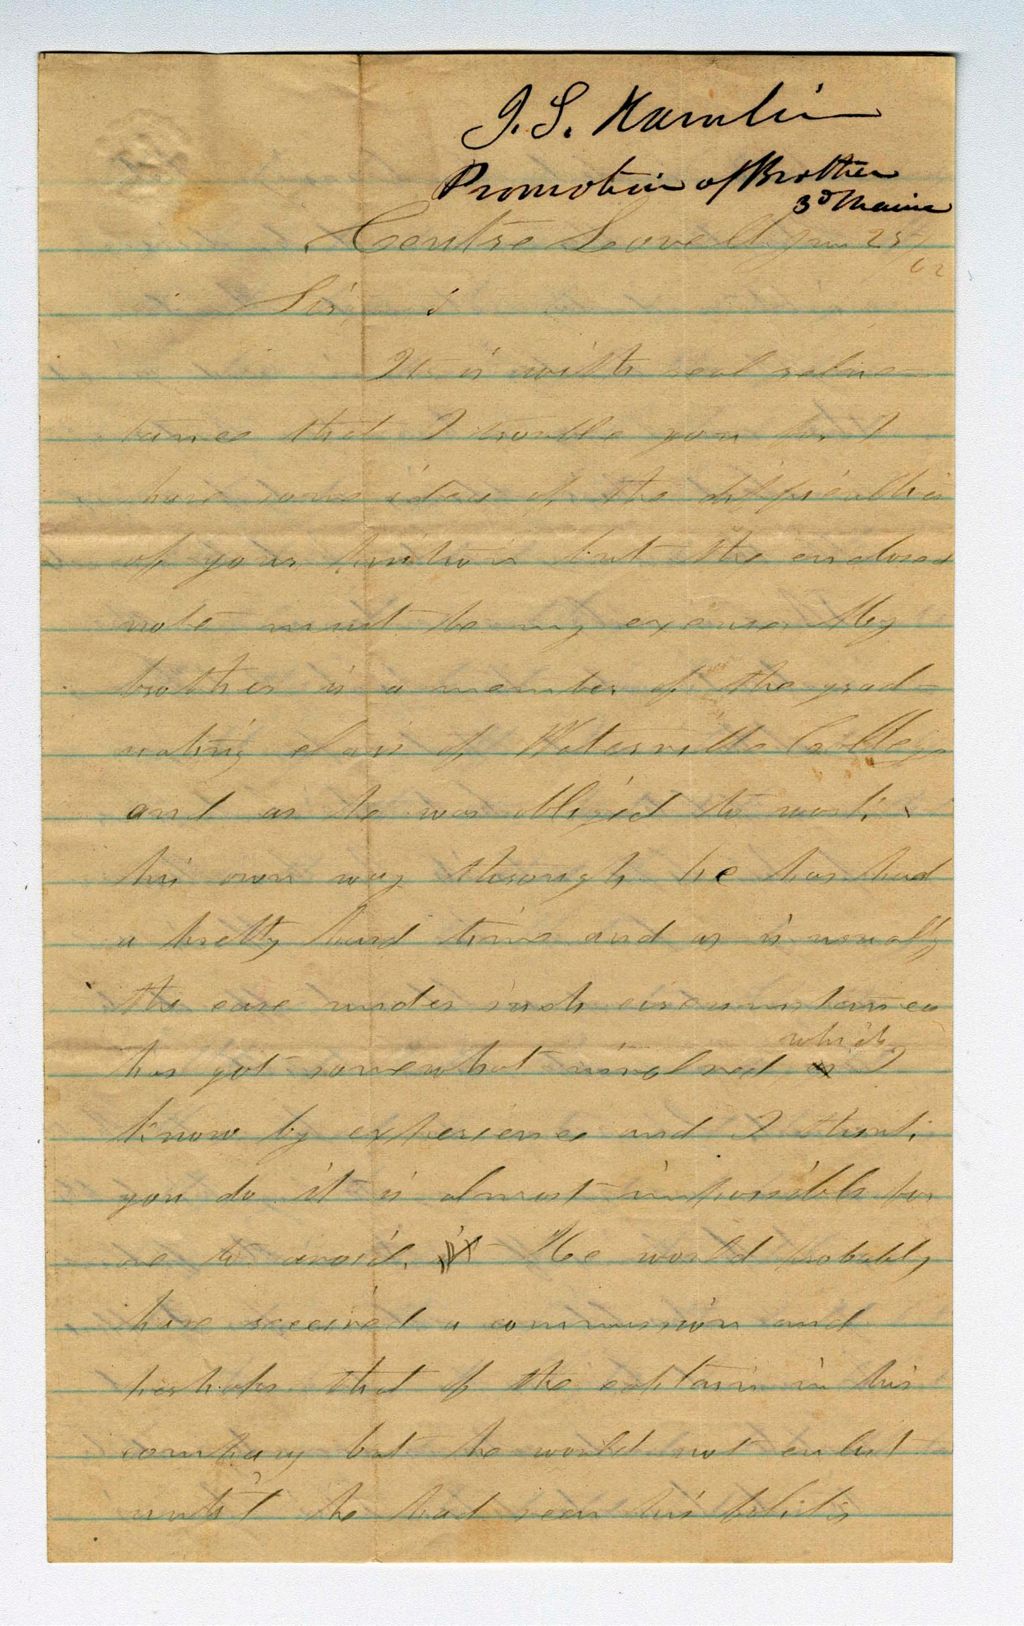 J. S. Hamlin
Promotion of Brother
3d Maine
Centre Lovell Jan 25/62
Sir
It is with real reluc-
tance that I trouble you for I
have some idea of the difficulties
of your position but the enclosed
note must be my excuse. My
brother is a member of the grad-
uating class of Waterville College
and as he was obliged to work
his own way through he has had
a pretty hard time and as is usually
the case under such circumstances
has got somewhat involved which I
know by experience and I think
you do it is almost impossible for
one to avoid. He would probably
have received a commission and
perhaps that of the captain in his
company but he would not enlist
until he had seen his